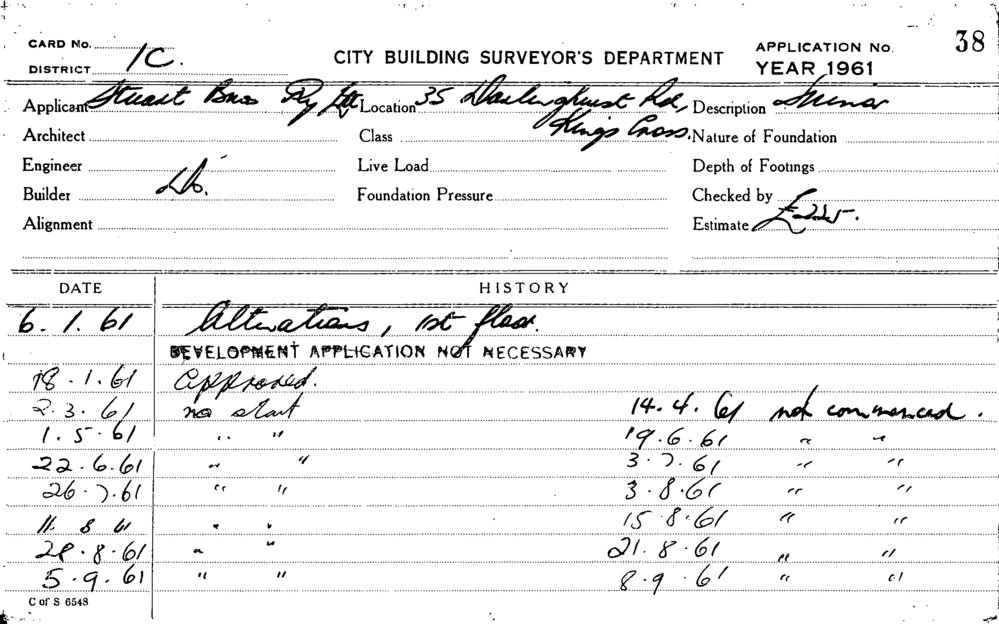 CARD No. 1C.
DISTRICT
CITY BUILDING SURVEYOR'S DEPARTMENT
APPLICATION No. 38
YEAR 1961
Applicant Stuart Bros Pty Ltd Location 35 Darlinghurst Rd, Description Minor
Architect Class Kings Cross. Nature of Foundation
Engineer Live Load Depth of Footings
Builder Do. Foundation Pressure Checked by
Alignment Estimate £225.
DATE HISTORY
6.1.61 Alterations, 1st floor.
DEVELOPMENT APPLICATION NOT NECESSARY
18.1.61 Approved.
2.3.61 no start 14.4.61 not commenced.
1.5.61 " " 19.6.61 " "
22.6.61 " " 3.7.61 " "
26.7.61 " " 3.8.61 " "
11.8.61 " " 15.8.61 " "
28.8.61 " " 21.8.61 " "
5.9.61 " " 8.9.61 " "
C of S 6548